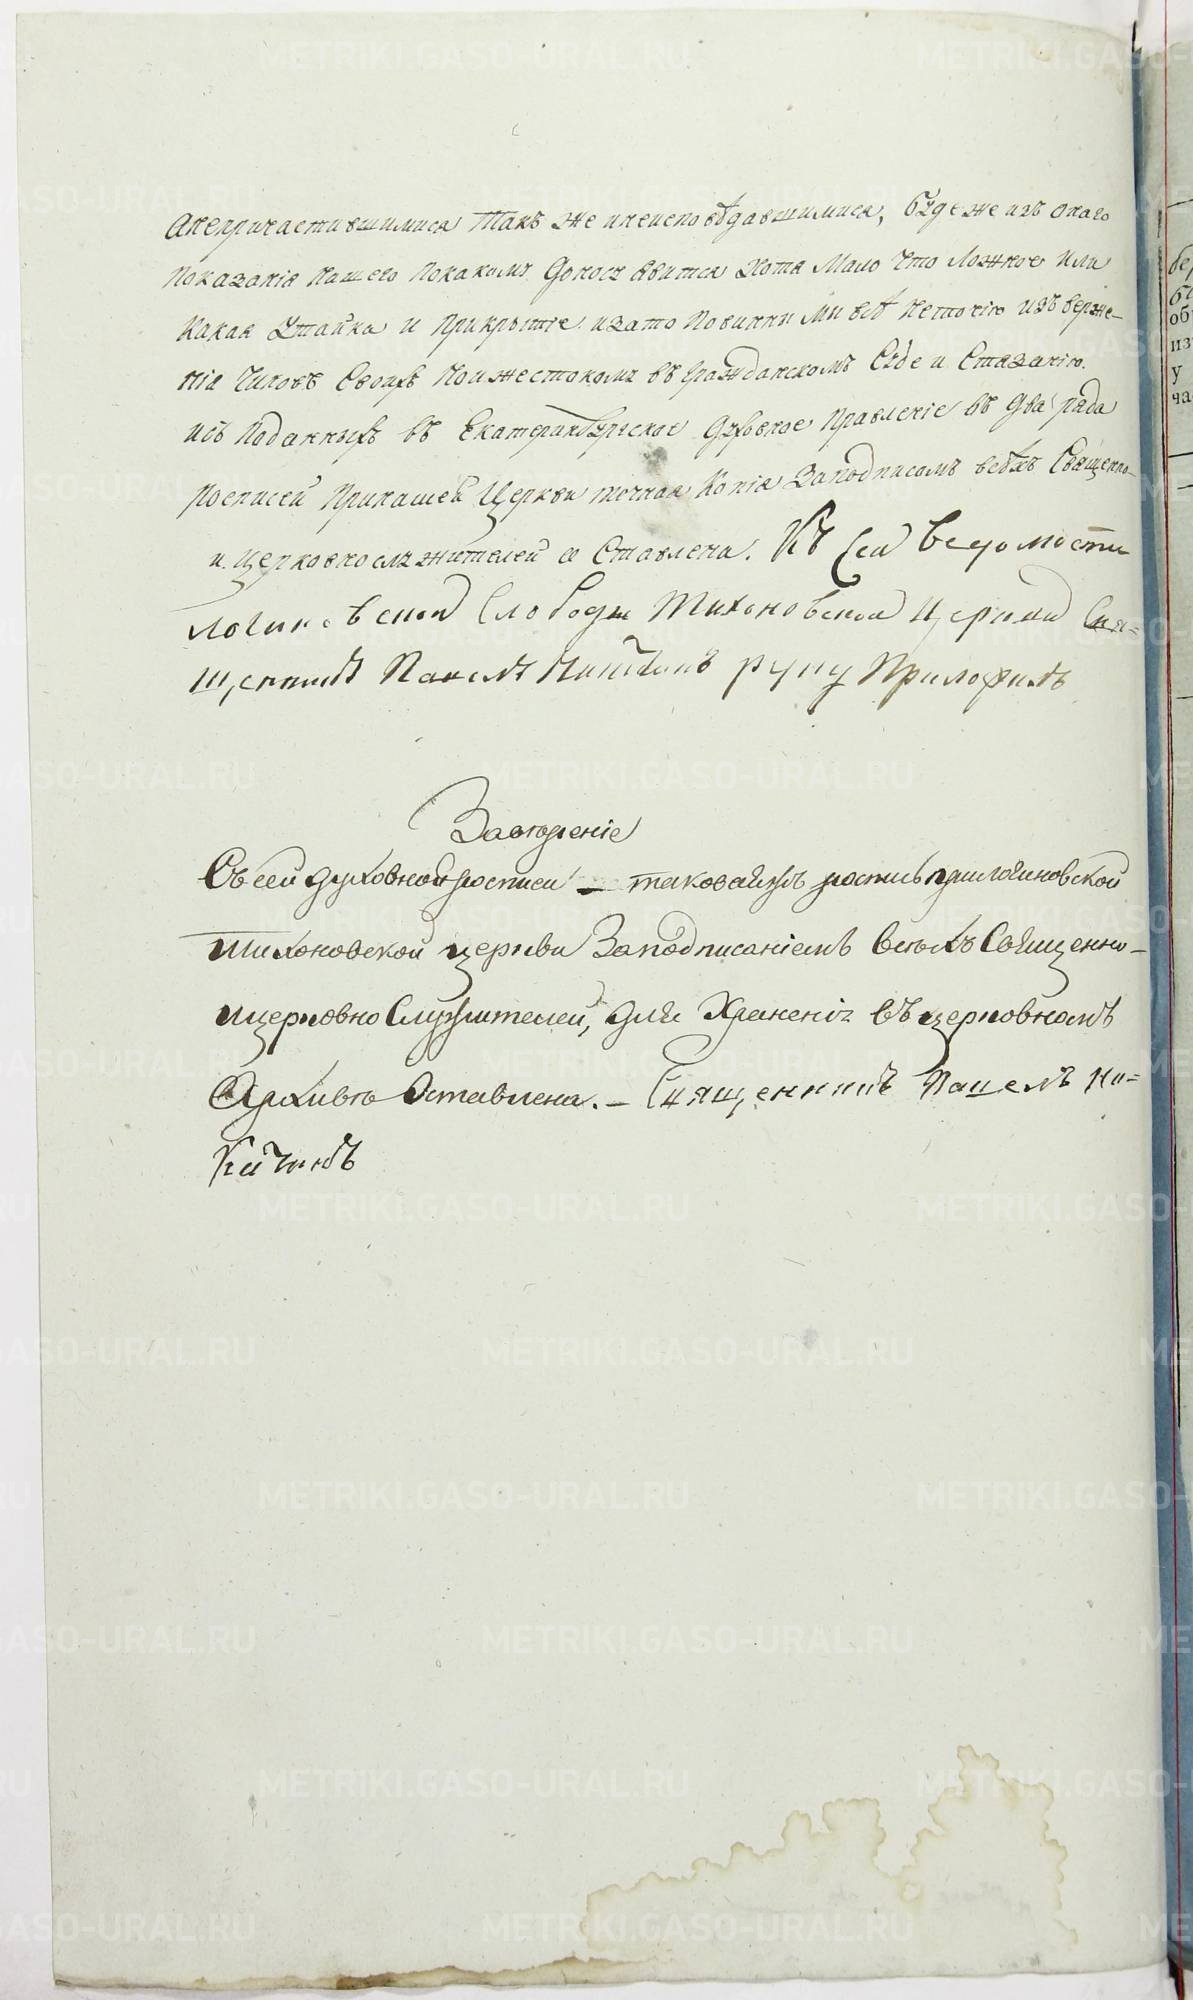 METRIKI.GASO-URAL.RU
анепричастившимися такъ же инеисповѣдавшимися, буде же изъ онаго
показанія нашего покакому доносу явится хотя мало что ложное или
какая утайка и прикрытіе. изато повинны мы всѣ неточію изъверже-
нія чиновъ своихъ но ижестокому въ гражданскомъ суде и стязанію.
изъ поданныхъ въ Екатеринбургское духовное правленіе въ два ряда
росписей принашей церкви точная копія заподписомъ всѣхъ священно-
и церковнослужителей оставлена. Къ сей ведомости
логиновской слободы Тихоновской церкви свя=
щенникъ Павелъ руку приложилъ
Заверженіе
Съ сей духовной росписи — таковаяжъ роспись прилогиновской
тихоновской церкви заподписаніемъ всѣхъ священно-
ицерковно служителей, для храненія въ церковномъ
Архивѣ оставлена. — Священникъ Павелъ Ни=
китинъ